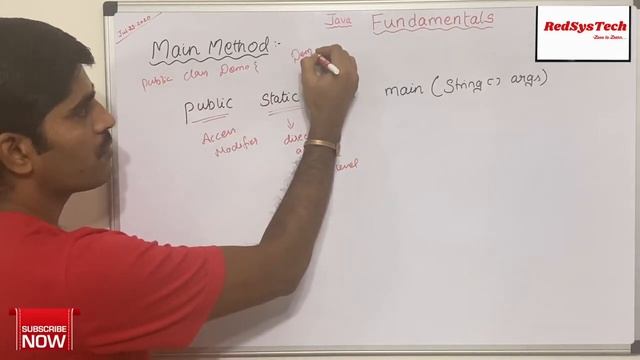 Jul 25 2020
Java Fundamentals
RedSysTech
Main Method :-
Dem
public class Demo {
public static main (String [] args)
Access
Modifier
level
SUBSCRIBE
NOW